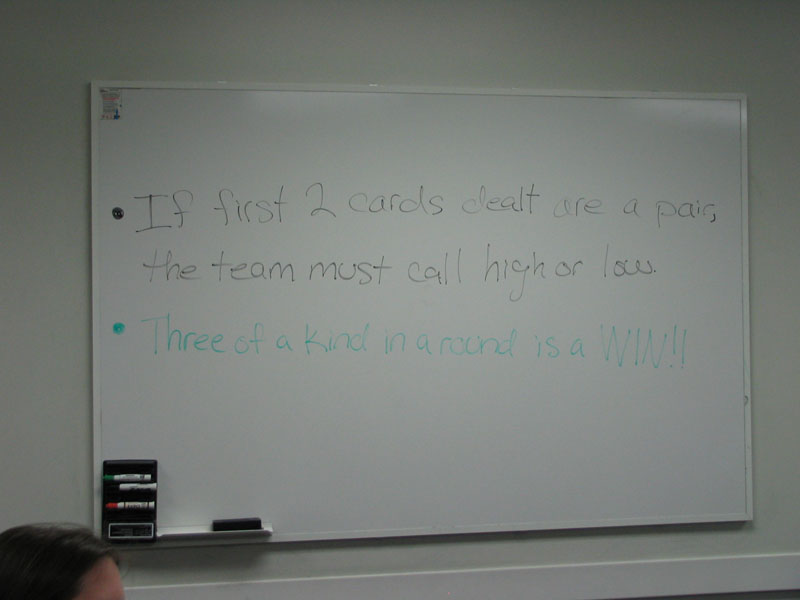 • If first 2 cards dealt are a pair,
the team must call high or low.
• Three of a kind in a round is a WIN!!